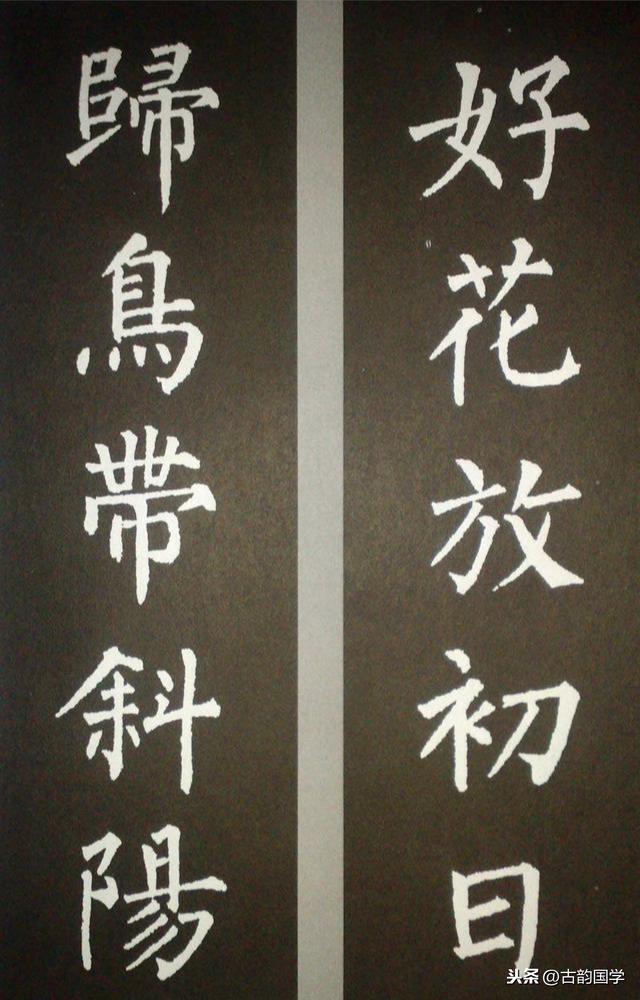 好花放初日
歸鳥帶斜陽
头条 @古韵国学